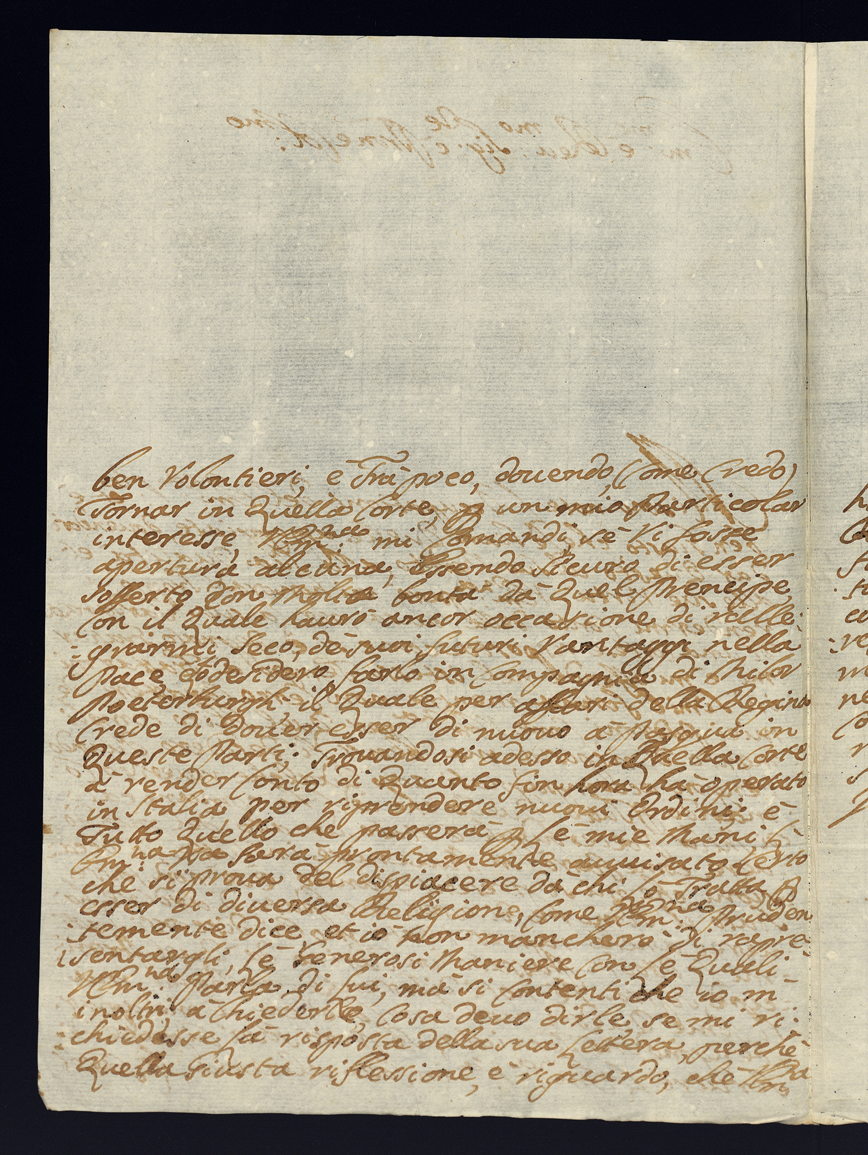 ben Volontieri, e Frà poco, douendo, (come credo)
Tornar in Quella Corte, p un mio Particolar
interesse, Vra Em.za mi Comandi, sè Vi fosse
apertura alcuna, Essendo sicuro di esser
sofferto con molta bontà dà Quel Prencipe
con il Quale haurò ancor occasione di ralle-
:grarmi seco, dè suoi futuri Vantaggi nella
Pace, e desidero farlo in Compagnia di Milor
Peeterburgh il Quale per affari della Regina
Crede di douer esser di nuouo à Pasqua in
Queste Parti; Trouandosi adesso in Quella Corte
à render Conto di Quanto fin hora hà operato
in Italia per riprendere nuoui Ordini; è
Tutto Quello che passerà p lè mie Mani
sarà prontamente auuisato Certo
che si proua del dispiacere dà chi lò Tratta p
esser di diuersa Religione, Come Vra Em.za Pruden
:temente dice, et iò non mancherò di rapre
:sentargli, lè Generosi Maniere con lè Quali
Vra Em.za Parla di lui, mà si Contenti che io m'
inoltri à chiederlle, Cosa deuo dirle se mi ri:
:chiedesse là risposta della sua Lettera, perchè
Quella Giusta riflessione, è riguardo, chè Vra Em.za